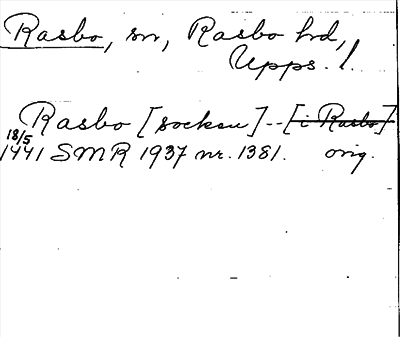 Rasbo, sn, Rasbo hd,
Upps. l.
Rasbo [socken] -- [i Rasbo]
18/5
1441 SMR 1937 nr. 1381. orig.